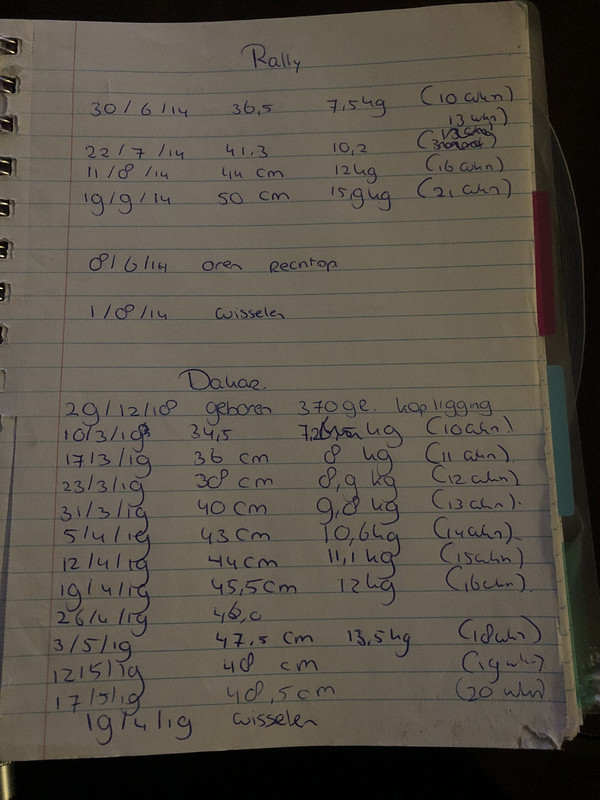 Rally
30/6/14 36,5 7,5kg (10 wkn)
22/7/14 41.3 10,2 13 wkn)
11/8/14 44 cm 12kg (16 wkn)
19/9/14 50 cm 15,9kg (21 wkn)
08/6/14 oren rechtop
1/08/14 wisselen
Dakar.
29/12/18 geboren 370gr. kopligging
10/3/19 34,5 kg (10wkn)
17/3/19 36 cm 8 kg (11 wkn)
23/3/19 38 cm 8,9 kg (12 wkn)
31/3/19 40 cm 9,8 kg (13 wkn).
5/4/19 43 cm 10,6kg (14wkn)
12/4/19 44cm 11,1kg (15wkn)
19/4/19 45,5cm 12kg (16wkn).
26/4/19 46,0
3/5/19 47,5 cm 13,5kg (18wkn)
12/5/19 48 cm (19wkn)
17/5/19 48,5cm (20 wkn)
19/4/19 wisselen